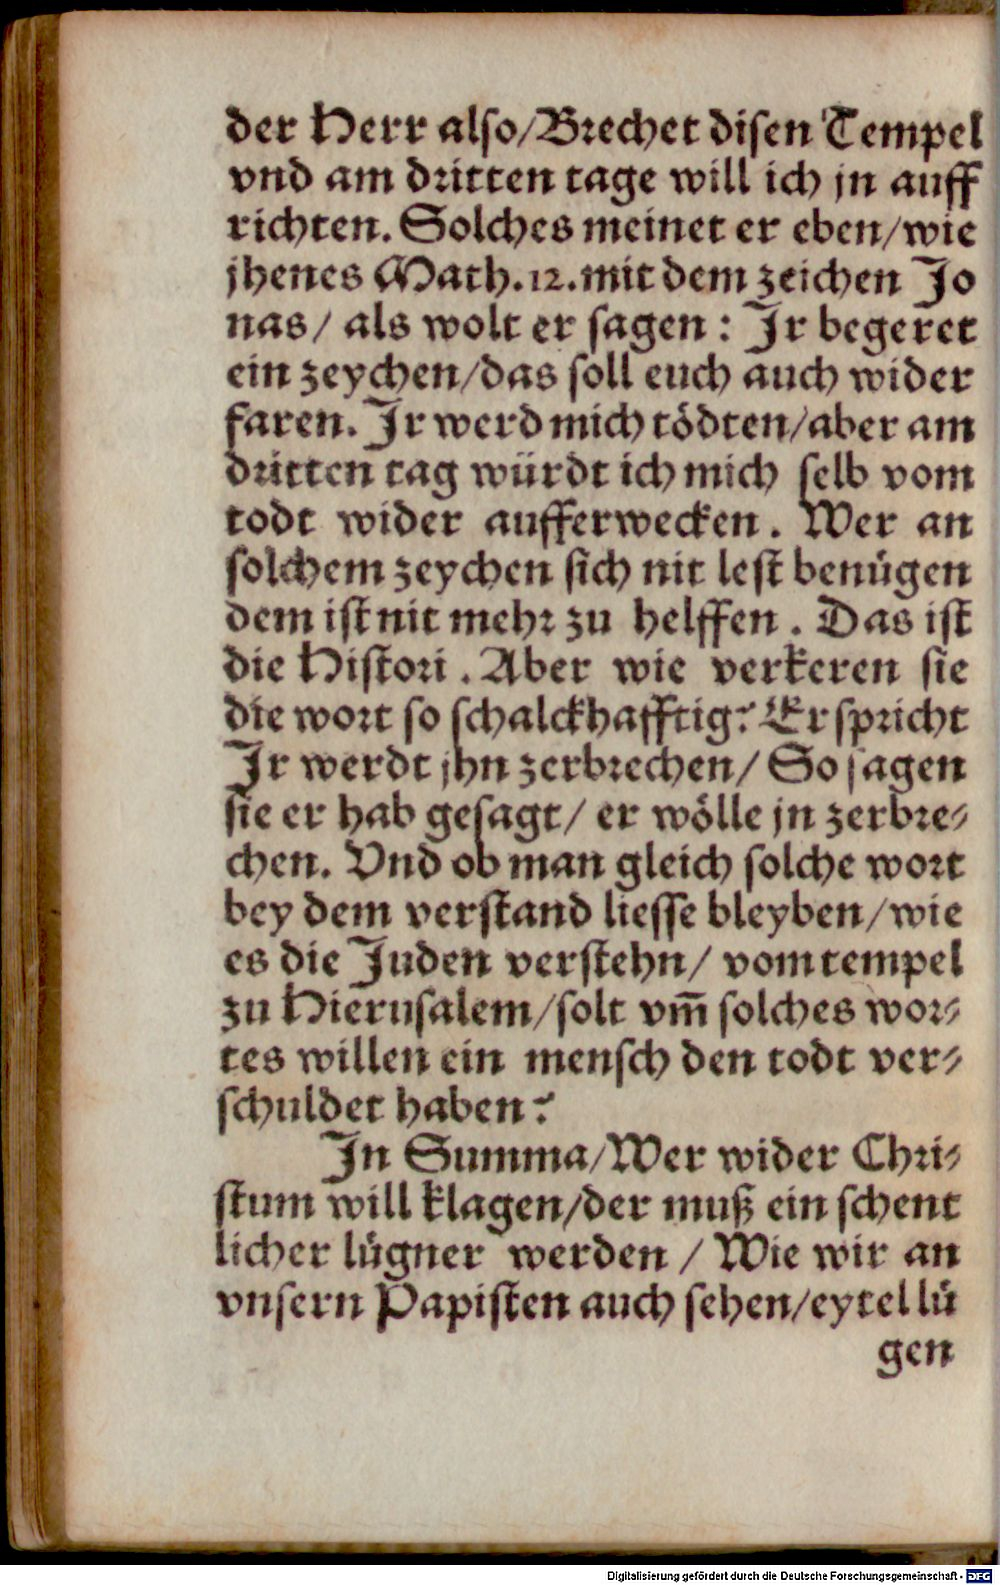 der Herr also/Brechet disen Tempel
vnd am dritten tage will ich jn auff
richten. Solches meinet er eben/wie
jhenes Math. 12. mit dem zeichen Jo
nas/ als wolt er sagen : Jr begeret
ein zeychen/das soll euch auch wider
faren. Jr werd mich tödten/aber am
dritten tag würdt ich mich selb vom
todt wider aufferwecken. Wer an
solchem zeychen sich nit lest benügen
dem ist nit mehr zu helffen. Das ist
die Histori. Aber wie verkeren sie
die wort so schalckhafftig? Er spricht
Jr werdt jhn zerbrechen/ So sagen
sie er hab gesagt/ er wölle jn zerbre-
chen. Vnd ob man gleich solche wort
bey dem verstand liesse bleyben/wie
es die Juden verstehn/ vom tempel
zu Hierusalem/solt vm̄ solches wor-
tes willen ein mensch den todt ver-
schuldet haben?
Jn Summa/Wer wider Chri-
stum will klagen/der muß ein schent
licher lügner werden / Wie wir an
vnsern Papisten auch sehen/eytel lü
gen
Digitalisierung gefördert durch die Deutsche Forschungsgemeinschaft - DFG